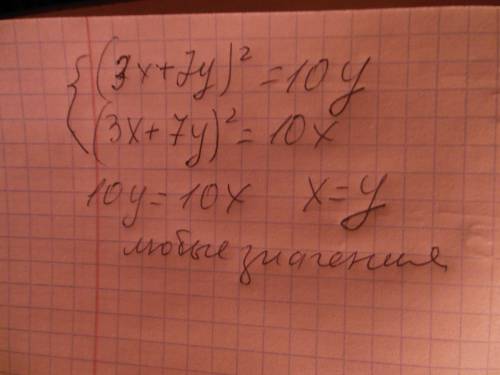 {(3x+7y)² = 10y
(3x+7y)² = 10x
10y = 10x x = y
любые значения